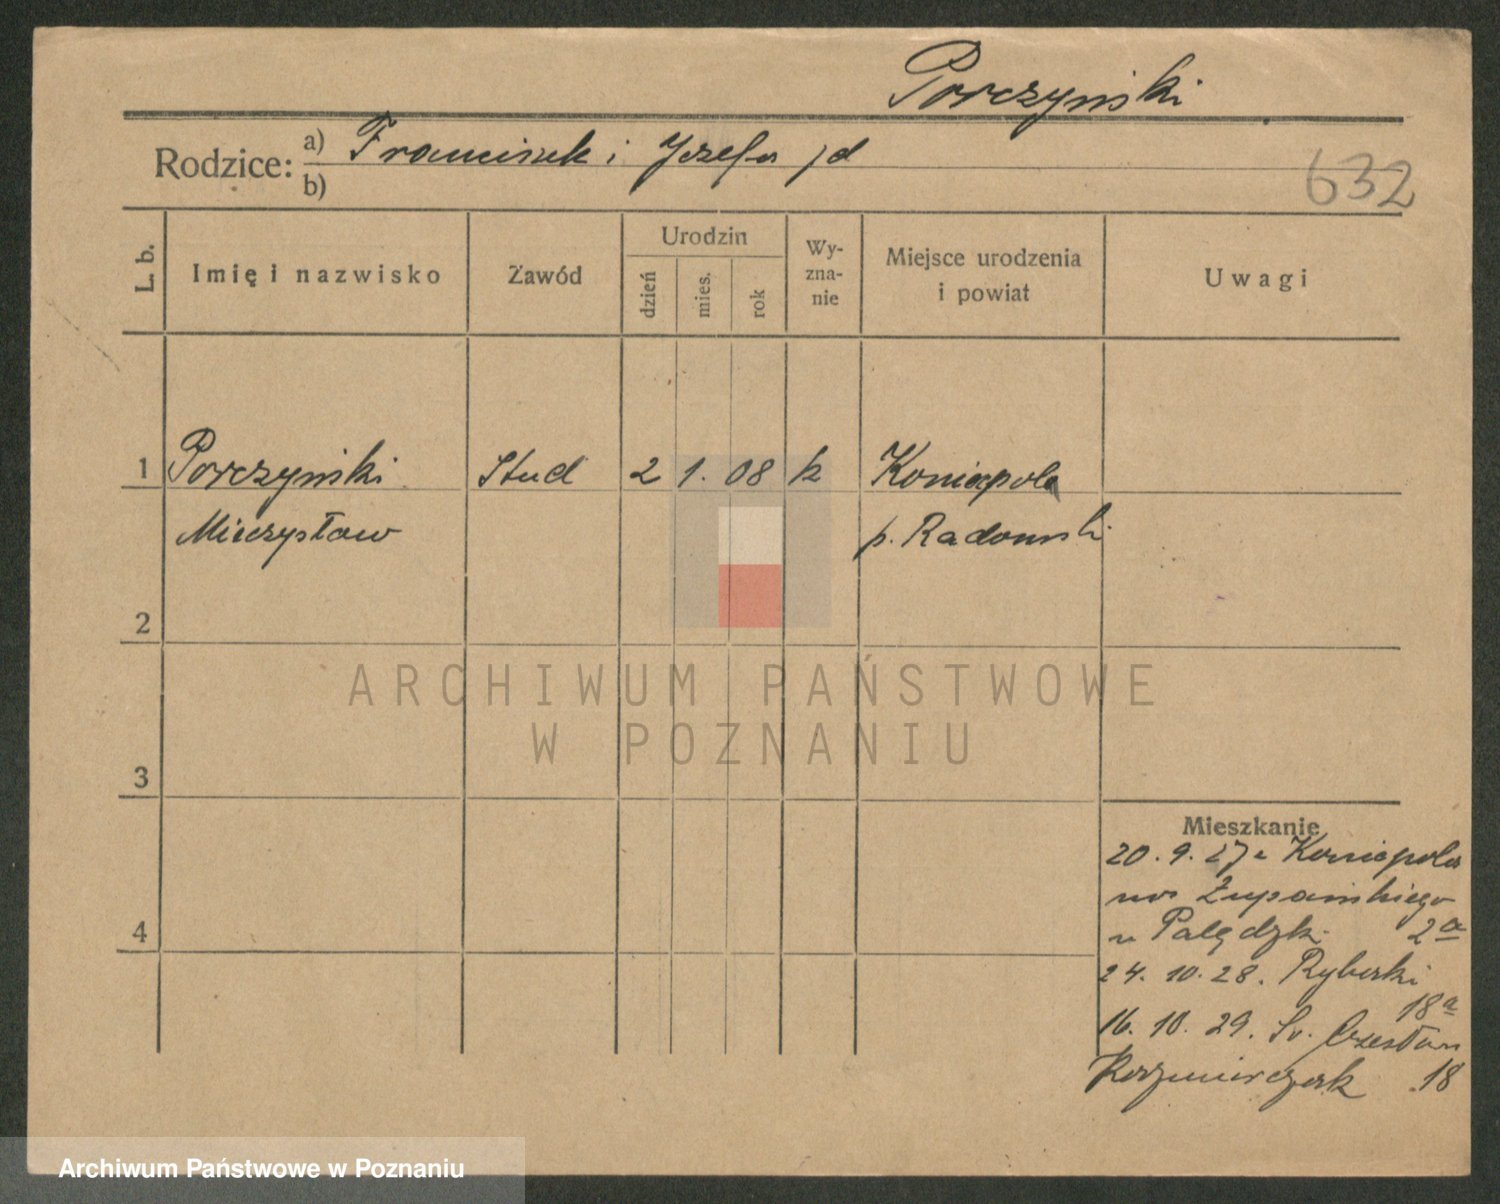 Porczyński
Rodzice: a) Franciszek i Józefa jd
b)
632
L. b.
Imię i nazwisko
Zawód
Urodzin
dzień
mies.
rok
Wy-
zna-
nie
Miejsce urodzenia
i powiat
Uwagi
1 Porczyński Stud 2 1. 08 k Koniecpola
Mieczysław p. Radomski
2
ARCHIWUM PAŃSTWOWE
W POZNANIU
3
Mieszkanie
20. 9. 27 z Koniecpola
Żupańskiego
u Palędzki 2a
4
24. 10. 28. Rybaki
18a
16. 10. 29. Św. Czesława
18
Archiwum Państwowe w Poznaniu